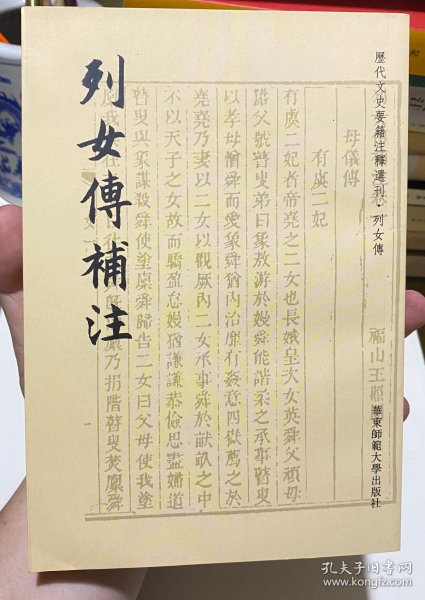 列女傳補注
歷代文史要籍注釋選刊·列女傳
華東師範大學出版社
母儀傳
有虞二妃
有虞二妃者帝堯之二女也長娥皇次女英舜父頑母
嚚父號瞽叟弟曰象敖游於嫚舜能諧柔之承事瞽叟
以孝母憎舜而愛象舜猶內治靡有姦意四嶽薦之於
堯堯乃妻以二女以觀厥內二女承事舜於畎畝之中
不以天子之女故而驕盈怠嫚猶謙謙恭儉思盡婦道
瞽叟與象謀殺舜使塗廩舜歸告二女曰父母使我塗
廩乃捐階瞽叟焚廩舜
福山王照
孔夫子旧书网
www.kongfz.com